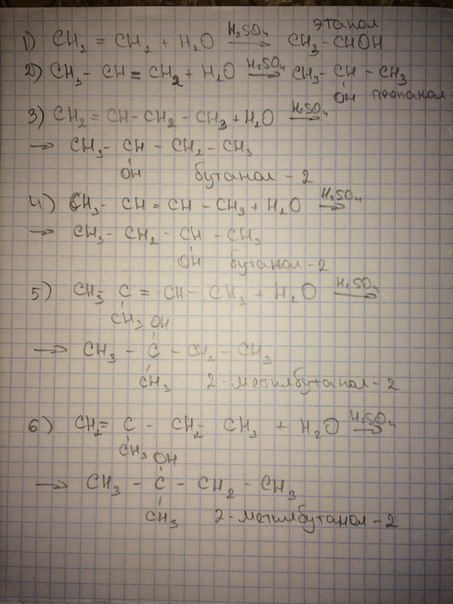 этанол
1) CH₂ = CH₂ + H₂O H₂SO₄ → CH₃ - CHOH
2) CH₃ - CH = CH₂ + H₂O H₂SO₄ → CH₃ - CH - CH₃
OH пропанол
3) CH₂ = CH - CH₂ - CH₃ + H₂O H₂SO₄ →
→ CH₃ - CH - CH₂ - CH₃
OH бутанол - 2
4) CH₃ - CH = CH - CH₃ + H₂O H₂SO₄ →
→ CH₃ - CH₂ - CH - CH₃
OH бутанол - 2
5) CH₃ C = CH - CH₃ + H₂O H₂SO₄ →
CH₃ OH
→ CH₃ - C - CH₂ - CH₃
CH₃ 2 - метилбутанол - 2
6) CH₂ = C - CH₂ - CH₃ + H₂O H₂SO₄ →
CH₃ OH
→ CH₃ - C - CH₂ - CH₃
CH₃ 2 - метилбутанол - 2